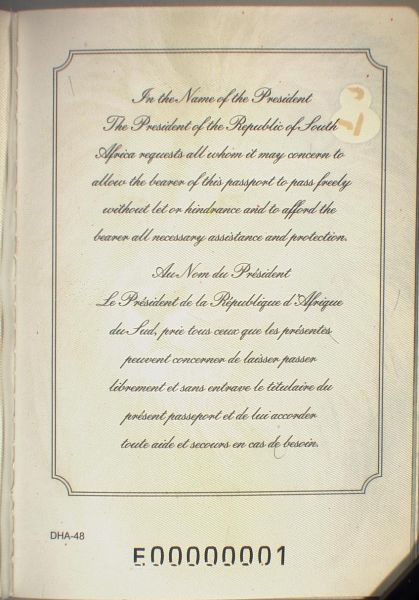 In the Name of the President
The President of the Republic of South
Africa requests all whom it may concern to
allow the bearer of this passport to pass freely
without let or hindrance and to afford the
bearer all necessary assistance and protection.
Au Nom du Président
Le Président de la République d'Afrique
du Sud, prie tous ceux que les présentes
peuvent concerner de laisser passer
librement et sans entrave le titulaire du
présent passeport et de lui accorder
toute aide et secours en cas de besoin.
DHA-48
E00000001